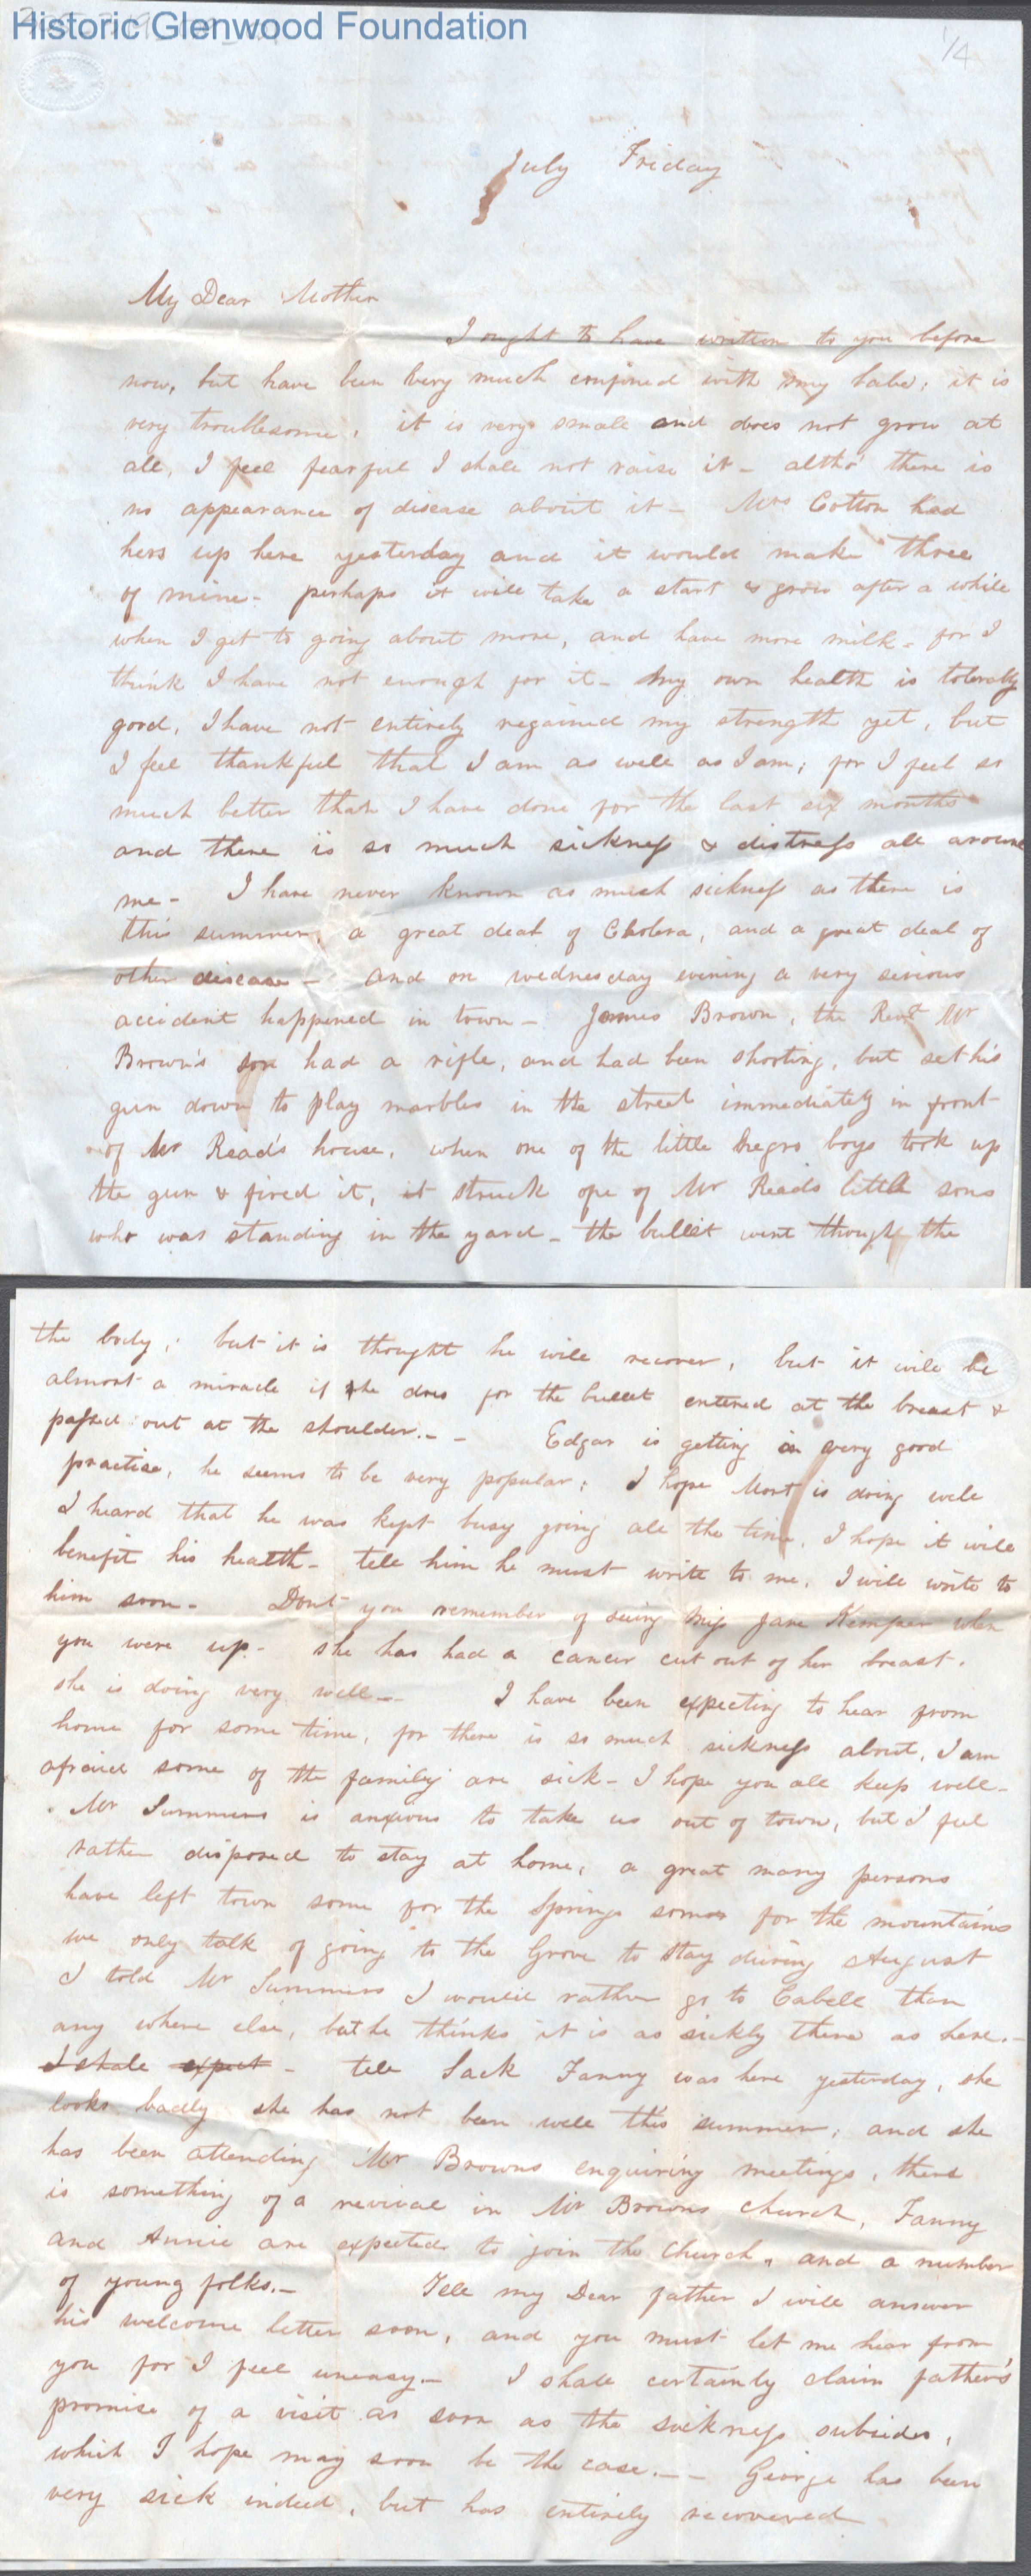 Historic Glenwood Foundation
1/4
July Friday
My Dear Mother
I ought to have written to you before
now, but have been very much confined with my babe; it is
very troublesome, it is very small and does not grow at
all, I feel fearful I shall not raise it - altho' there is
no appearance of disease about it - Mrs Cotton had
hers up here yesterday and it would make three
of mine - perhaps it will take a start & grow after a while
when I get to going about more, and have more milk - for I
think I have not enough for it - My own health is tolerably
good, I have not entirely regained my strength yet, but
I feel thankful that I am as well as I am; for I feel so
much better than I have done for the last six months
and there is so much sickness & distress all around
me - I have never known as much sickness as there is
this summer, a great deal of Cholera, and a great deal of
other disease - and on wednesday evening a very serious
accident happened in town - James Brown, the Revd Mr
Brown's son had a rifle, and had been shooting, but set his
gun down to play marbles in the street immediately in front
of Mr Read's house, when one of the little negro boys took up
the gun & fired it, it struck one of Mr Reads little sons
who was standing in the yard - the bullet went though the
the body; but it is thought he will recover, but it will be
almost a miracle if he does for the bullet entered at the breast &
passed out at the shoulder. - - Edgar is getting in very good
practise, he seems to be very popular; I hope Mort is doing well
I heard that he was kept busy going all the time, I hope it will
benefit his health - tell him he must write to me, I will write to
him soon - Dont you remember of seeing Miss Jane Kemper when
you were up - she has had a cancer cut out of her breast.
she is doing very well - - I have been expecting to hear from
home for some time, for there is so much sickness about, I am
afraid some of the family are sick - I hope you all keep well -
Mr Summers is anxious to take us out of town, but I feel
rather disposed to stay at home, a great many persons
have left town some for the Springs some for the mountains
we only talk of going to the Grove to stay during August
I told Mr Summers I would rather go to Cabell than
any where else, but he thinks it is as sickly there as here. -
I shall expect - tell Sack Fanny was here yesterday, she
looks badly she has not been well this summer, and she
has been attending Mr Browns enquiring meetings, there
is something of a revival in Mr Browns church, Fanny
and Annie are expected to join the church, and a number
of young folks. - Tell my Dear father I will answer
his welcome letter soon, and you must let me hear from
you for I feel uneasy - I shall certainly claim father's
promise of a visit as soon as the sickness subsides,
which I hope may soon be the case. - - George has been
very sick indeed, but has entirely recovered